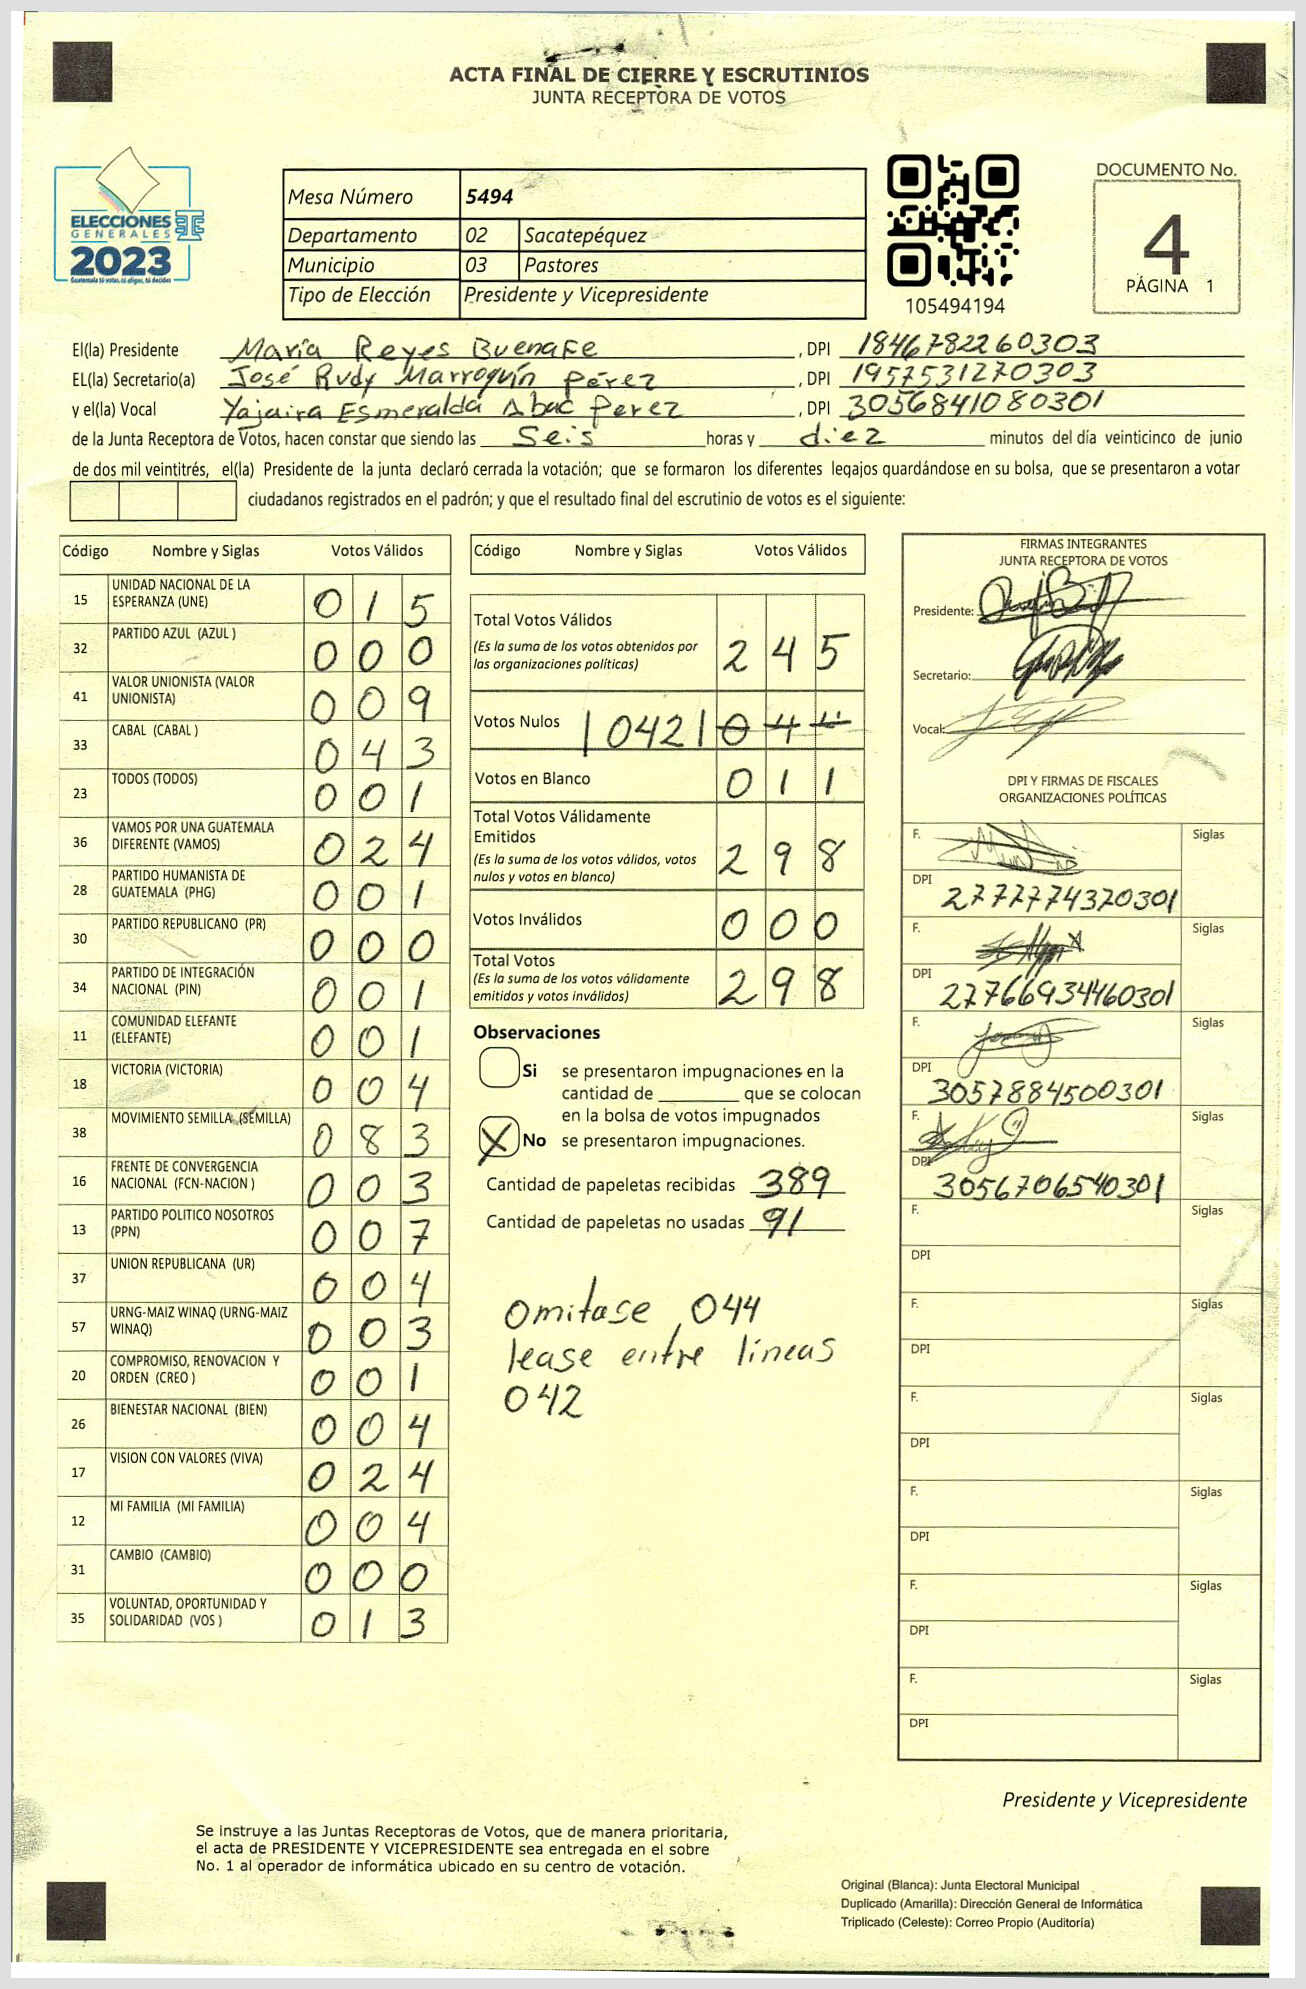 ACTA FINAL DE CIERRE Y ESCRUTINIOS
JUNTA RECEPTORA DE VOTOS
ELECCIONES
GENERALES
2023
Guatemala tú votas, tú eliges, tú decides
Mesa Número 5494
Departamento 02 Sacatepéquez
Municipio 03 Pastores
Tipo de Elección Presidente y Vicepresidente
105494194
DOCUMENTO No.
4
PÁGINA 1
El(la) Presidente María Reyes Buenafe , DPI 1846782260303
EL(la) Secretario(a) José Rudy Marroquín Pérez , DPI 1957531270303
y el(la) Vocal Yajaira Esmeralda Abac Perez , DPI 3056841080301
de la Junta Receptora de Votos, hacen constar que siendo las Seis horas y diez minutos del día veinticinco de junio
de dos mil veintitrés, el(la) Presidente de la junta declaró cerrada la votación; que se formaron los diferentes legajos guardándose en su bolsa, que se presentaron a votar
ciudadanos registrados en el padrón; y que el resultado final del escrutinio de votos es el siguiente:
Código Nombre y Siglas Votos Válidos
15 UNIDAD NACIONAL DE LA ESPERANZA (UNE) 015
32 PARTIDO AZUL (AZUL ) 000
41 VALOR UNIONISTA (VALOR UNIONISTA) 009
33 CABAL (CABAL ) 043
23 TODOS (TODOS) 001
36 VAMOS POR UNA GUATEMALA DIFERENTE (VAMOS) 024
28 PARTIDO HUMANISTA DE GUATEMALA (PHG) 001
30 PARTIDO REPUBLICANO (PR) 000
34 PARTIDO DE INTEGRACIÓN NACIONAL (PIN) 001
11 COMUNIDAD ELEFANTE (ELEFANTE) 001
18 VICTORIA (VICTORIA) 004
38 MOVIMIENTO SEMILLA (SEMILLA) 083
16 FRENTE DE CONVERGENCIA NACIONAL (FCN-NACION ) 003
13 PARTIDO POLITICO NOSOTROS (PPN) 007
37 UNION REPUBLICANA (UR) 004
57 URNG-MAIZ WINAQ (URNG-MAIZ WINAQ) 003
20 COMPROMISO, RENOVACION Y ORDEN (CREO ) 001
26 BIENESTAR NACIONAL (BIEN) 004
17 VISION CON VALORES (VIVA) 024
12 MI FAMILIA (MI FAMILIA) 004
31 CAMBIO (CAMBIO) 000
35 VOLUNTAD, OPORTUNIDAD Y SOLIDARIDAD (VOS ) 013
Código Nombre y Siglas Votos Válidos
Total Votos Válidos 245
(Es la suma de los votos obtenidos por
las organizaciones políticas)
Votos Nulos |042| 044
Votos en Blanco 011
Total Votos Válidamente
Emitidos 298
(Es la suma de los votos válidos, votos
nulos y votos en blanco)
Votos Inválidos 000
Total Votos 298
(Es la suma de los votos válidamente
emitidos y votos inválidos)
Observaciones
Si se presentaron impugnaciones en la
cantidad de ________ que se colocan
en la bolsa de votos impugnados
X No se presentaron impugnaciones.
Cantidad de papeletas recibidas 389
Cantidad de papeletas no usadas 91
omitase 044
lease entre lineas
042
FIRMAS INTEGRANTES
JUNTA RECEPTORA DE VOTOS
Presidente:
Secretario:
Vocal:
DPI Y FIRMAS DE FISCALES
ORGANIZACIONES POLÍTICAS
F. Siglas
DPI 2777774370301
F. Siglas
DPI 27766934460301
F. Siglas
DPI 3057884500301
F. Siglas
DPI 3056706540301
F. Siglas
DPI
F. Siglas
DPI
F. Siglas
DPI
F. Siglas
DPI
F. Siglas
DPI
F. Siglas
DPI
Presidente y Vicepresidente
Se instruye a las Juntas Receptoras de Votos, que de manera prioritaria,
el acta de PRESIDENTE Y VICEPRESIDENTE sea entregada en el sobre
No. 1 al operador de informática ubicado en su centro de votación.
Original (Blanca): Junta Electoral Municipal
Duplicado (Amarilla): Dirección General de Informática
Triplicado (Celeste): Correo Propio (Auditoría)